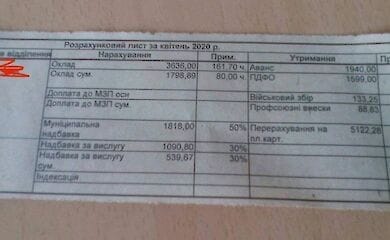 Розрахунковий лист за квітень 2020 р.
відділення Нарахування Прим. Утримання
Оклад 3636,00 161,70 ч. Аванс 1940,00
Оклад сум. 1798,89 80,00 ч. ПДФО 1599,00
Доплата до МЗП осн Військовий збір 133,25
Доплата до МЗП сум. Профсоюзні внески 88,83
Муніципальна надбавка 1818,00 50% Перерахування на пл.карт. 5122,28
Надбавка за вислугу 1090,80 30%
Надбавка за вислугу сум. 539,67 30%
Індексація